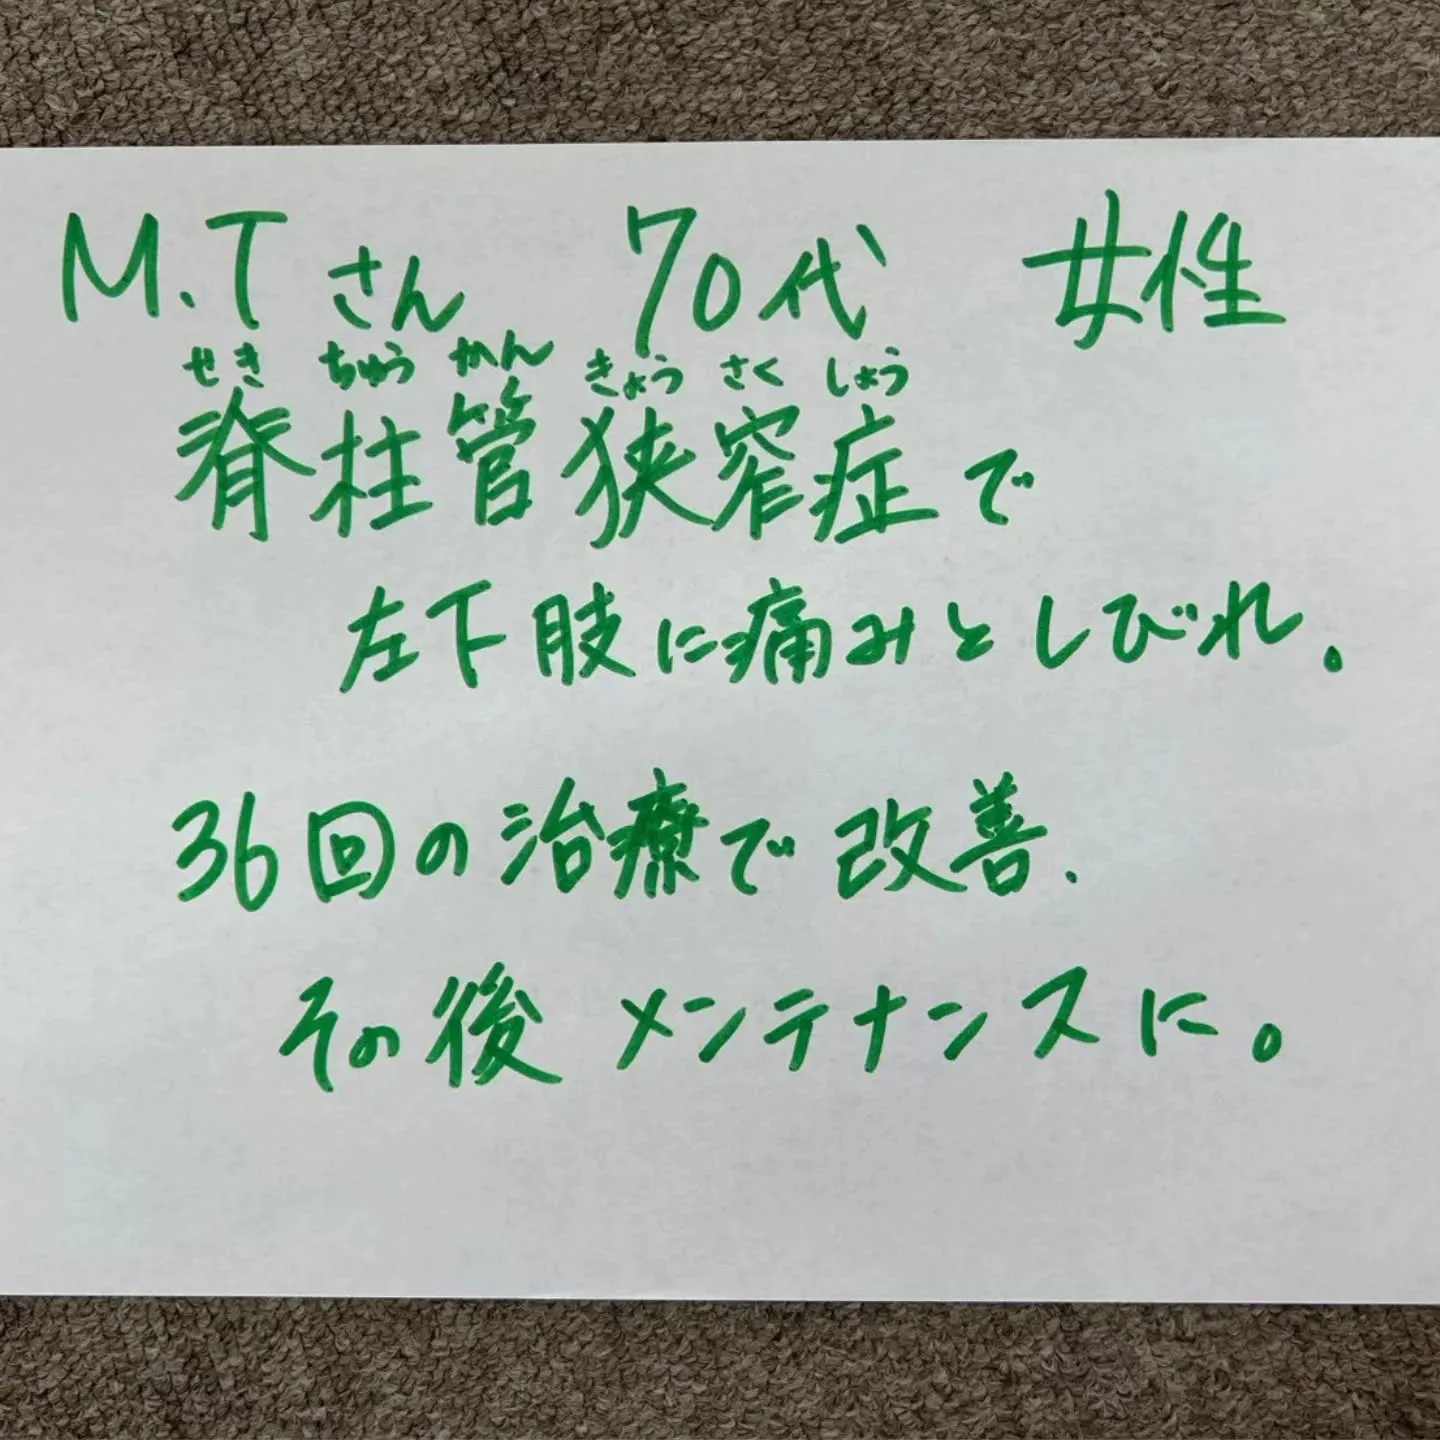 M.Tさん 70代 女性
せきちゅうかんきょうさくしょう
脊柱管狭窄症で
左下肢に痛みとしびれ。
36回の治療で改善.
その後メンテナンスに。